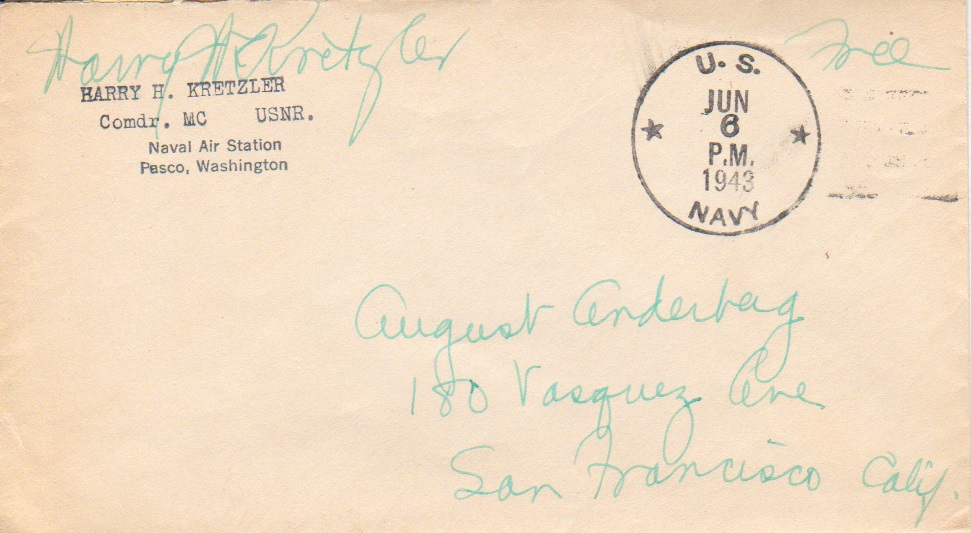 Harry H Kretzler
HARRY H. KRETZLER
Comdr. MC USNR.
Naval Air Station
Pasco, Washington
Free
U. S.
JUN
6
P.M.
1943
NAVY
August Anderbag
180 Vasquez Ave
San Francisco Calif.